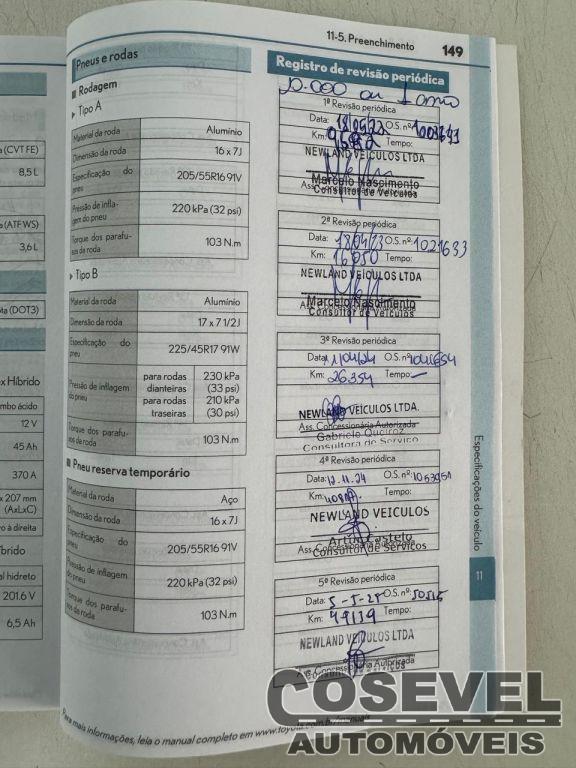 11-5. Preenchimento 149
(CVT FE)
8,5 L
(ATF WS)
3,6 L
(DOT3)
x Híbrido
mbo ácido
12 V
45 Ah
370 A
x 207 mm
(AxLxC)
vo à direita
íbrido
al hidreto
201.6 V
6,5 Ah
Pneus e rodas
Rodagem
Tipo A
Material da roda Alumínio
Dimensão da roda 16 x 7J
Especificação do pneu 205/55R16 91V
Pressão de inflagem do pneu 220 kPa (32 psi)
Torque dos parafusos da roda 103 N.m
Tipo B
Material da roda Alumínio
Dimensão da roda 17 x 7 1/2J
Especificação do pneu 225/45R17 91W
Pressão de inflagem do pneu
para rodas dianteiras 230 kPa (33 psi)
para rodas traseiras 210 kPa (30 psi)
Torque dos parafusos da roda 103 N.m
Pneu reserva temporário
Material da roda Aço
Dimensão da roda 16 x 7J
Especificação do pneu 205/55R16 91V
Pressão de inflagem do pneu 220 kPa (32 psi)
Torque dos parafusos da roda 103 N.m
Registro de revisão periódica
10.000 ou 1 ano
1ª Revisão periódica
Data: O.S. nº:
Km: Tempo:
NEWLAND VEICULOS LTDA
Marcelo Nascimento
Consultor de Veículos
2ª Revisão periódica
Data: 18/04/23 O.S. nº: 1021633
Km: 16050 Tempo:
NEWLAND VEICULOS LTDA
Marcelo Nascimento
Consultor de Veículos
3ª Revisão periódica
Data: O.S. nº:
Km: 26.354 Tempo:
NEWLAND VEICULOS LTDA.
Ass. Concessionária Autorizada
Gabriele Queiroz
Consultora de Serviço
4ª Revisão periódica
Data: 12.11.24 O.S. nº:
Km: Tempo:
NEWLAND VEICULOS
Castelo
Consultor de Serviços
5ª Revisão periódica
Data: 5-5-25 O.S. nº:
Km: 49139 Tempo:
NEWLAND VEICULOS LTDA
Ass. Concessionária Autorizada
Especificações do veículo
11
Para mais informações, leia o manual completo em www.toyota.com.br/manuais
COSEVEL
AUTOMÓVEIS